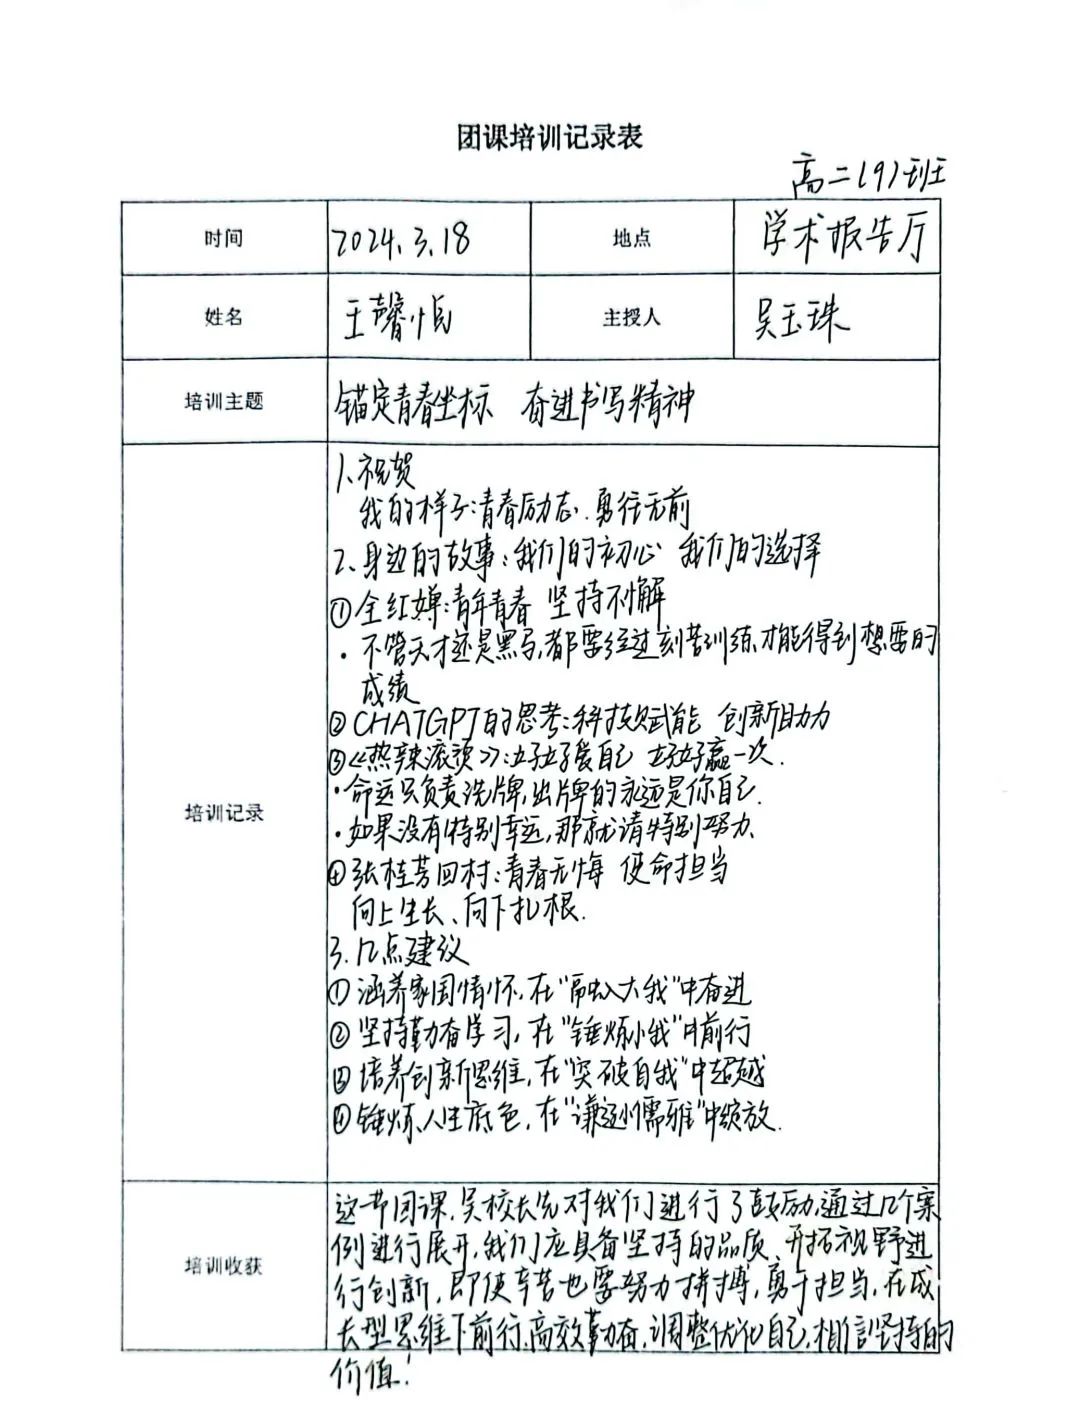 团课培训记录表
高二(9)班
时间 2024.3.18 地点 学术报告厅
姓名 王馨怡 主授人 吴玉珠
培训主题 锚定青春坐标 奋进书写精神
培训记录
1、祝贺
我的样子:青春励志.勇往无前
2、身边的故事:我们的初心 我们的选择
①全红婵:青年青春 坚持不懈
·不管天才还是黑马,都要经过刻苦训练,才能得到想要的
成绩
②CHATGPT的思考:科技赋能 创新助力
③《热辣滚烫》:好好爱自己 好好赢一次.
·命运只负责洗牌,出牌的永远是你自己.
·如果没有特别幸运,那就请特别努力、
④张桂芳回村:青春无悔 使命担当
向上生长、向下扎根.
3.几点建议
①涵养家国情怀,在"融入大我"中奋进
②坚持勤奋学习,在"锤炼小我"中前行
③培养创新思维,在"突破自我"中超越
④锤炼人生底色,在"谦逊儒雅"中绽放.
培训收获
这一节团课,吴校长先对我们进行了鼓励,通过几个案
例进行展开,我们应具备坚持的品质、开拓视野进
行创新,即使辛苦也要努力拼搏,勇于担当,在成
长型思维下前行,高效勤奋,调整优化自己,相信坚持的
价值!